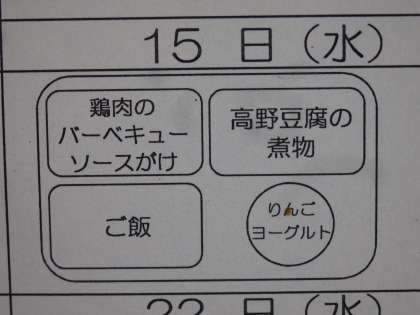 15 日(水)
鶏肉の
バーベキュー
ソースがけ
高野豆腐の
煮物
ご飯
りんご
ヨーグルト
22 日(水)